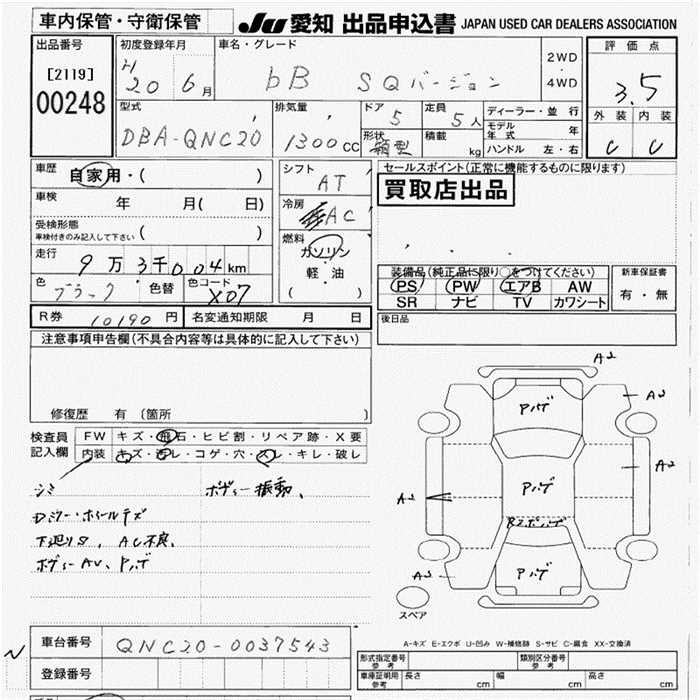 車内保管・守衛保管
JU 愛知 出品申込書 JAPAN USED CAR DEALERS ASSOCIATION
出品番号
[2119]
00248
初度登録年月
20 6月
車名・グレード
bB SQバージョン
2WD
・
4WD
評価点
3.5
外装 内装
C C
型式
DBA-QNC20
排気量
1300cc
ドア
5
定員
5人
形状
箱型
積載
kg
ディーラー・並行
モデル年式 年
ハンドル 左・右
車歴
自家用・( )
車検
年 月( 日)
受検形態
車検付きのみ記入して下さい ( )
走行
9万3千004km
色
ブラック
色替
色コード
X07
シフト
AT
冷房
AC
燃料
ガソリン
軽・油
( )
セールスポイント(正常に機能するものに限ります)
買取店出品
装備品(純正品に限り○をつけてください)
PS PW エアB AW
SR ナビ TV カワシート
新車保証書
有・無
R券 10190円 名変通知期限 月 日
後日品
注意事項申告欄(不具合内容等は具体的に記入して下さい)
修復歴 有(箇所 )
検査員
記入欄
FW キズ・飛石・ヒビ割・リペア跡・X要
内装 キズ・汚レ・コゲ・穴・スレ・キレ・破レ
シミ
ボディー振動、
Dミラー・ホイールキズ
下廻りS、AC不良、
ボディーAU、Pハゲ
A2
A2
Pハゲ
A2
Pハゲ
A2
Rスポハゲ
Pハゲ
A2
スペア
A-キズ E-エクボ U-凹み W-補修跡 S-サビ C-腐食 XX-交換済
車台番号 QNC20-0037543
登録番号
形式指定番号
参考
類別区分番号
参考
車庫証明用
参考
長さ cm 幅 cm 高さ cm